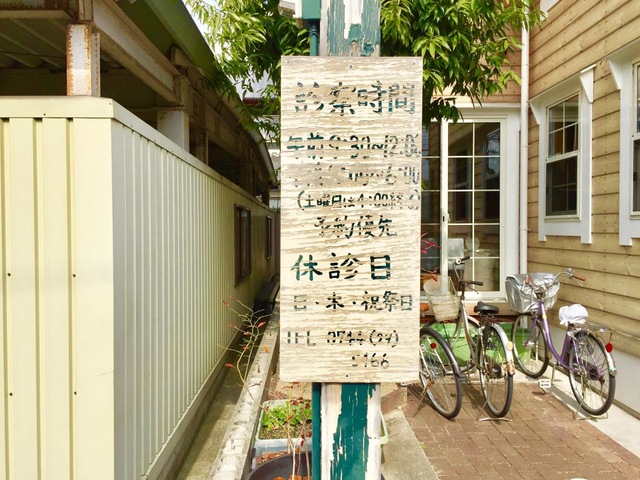 診察時間
午前9:30~12:00
(土曜日は4:00終了)
予約優先
休診日
日・木・祝祭日
TEL 0744(24)
5166